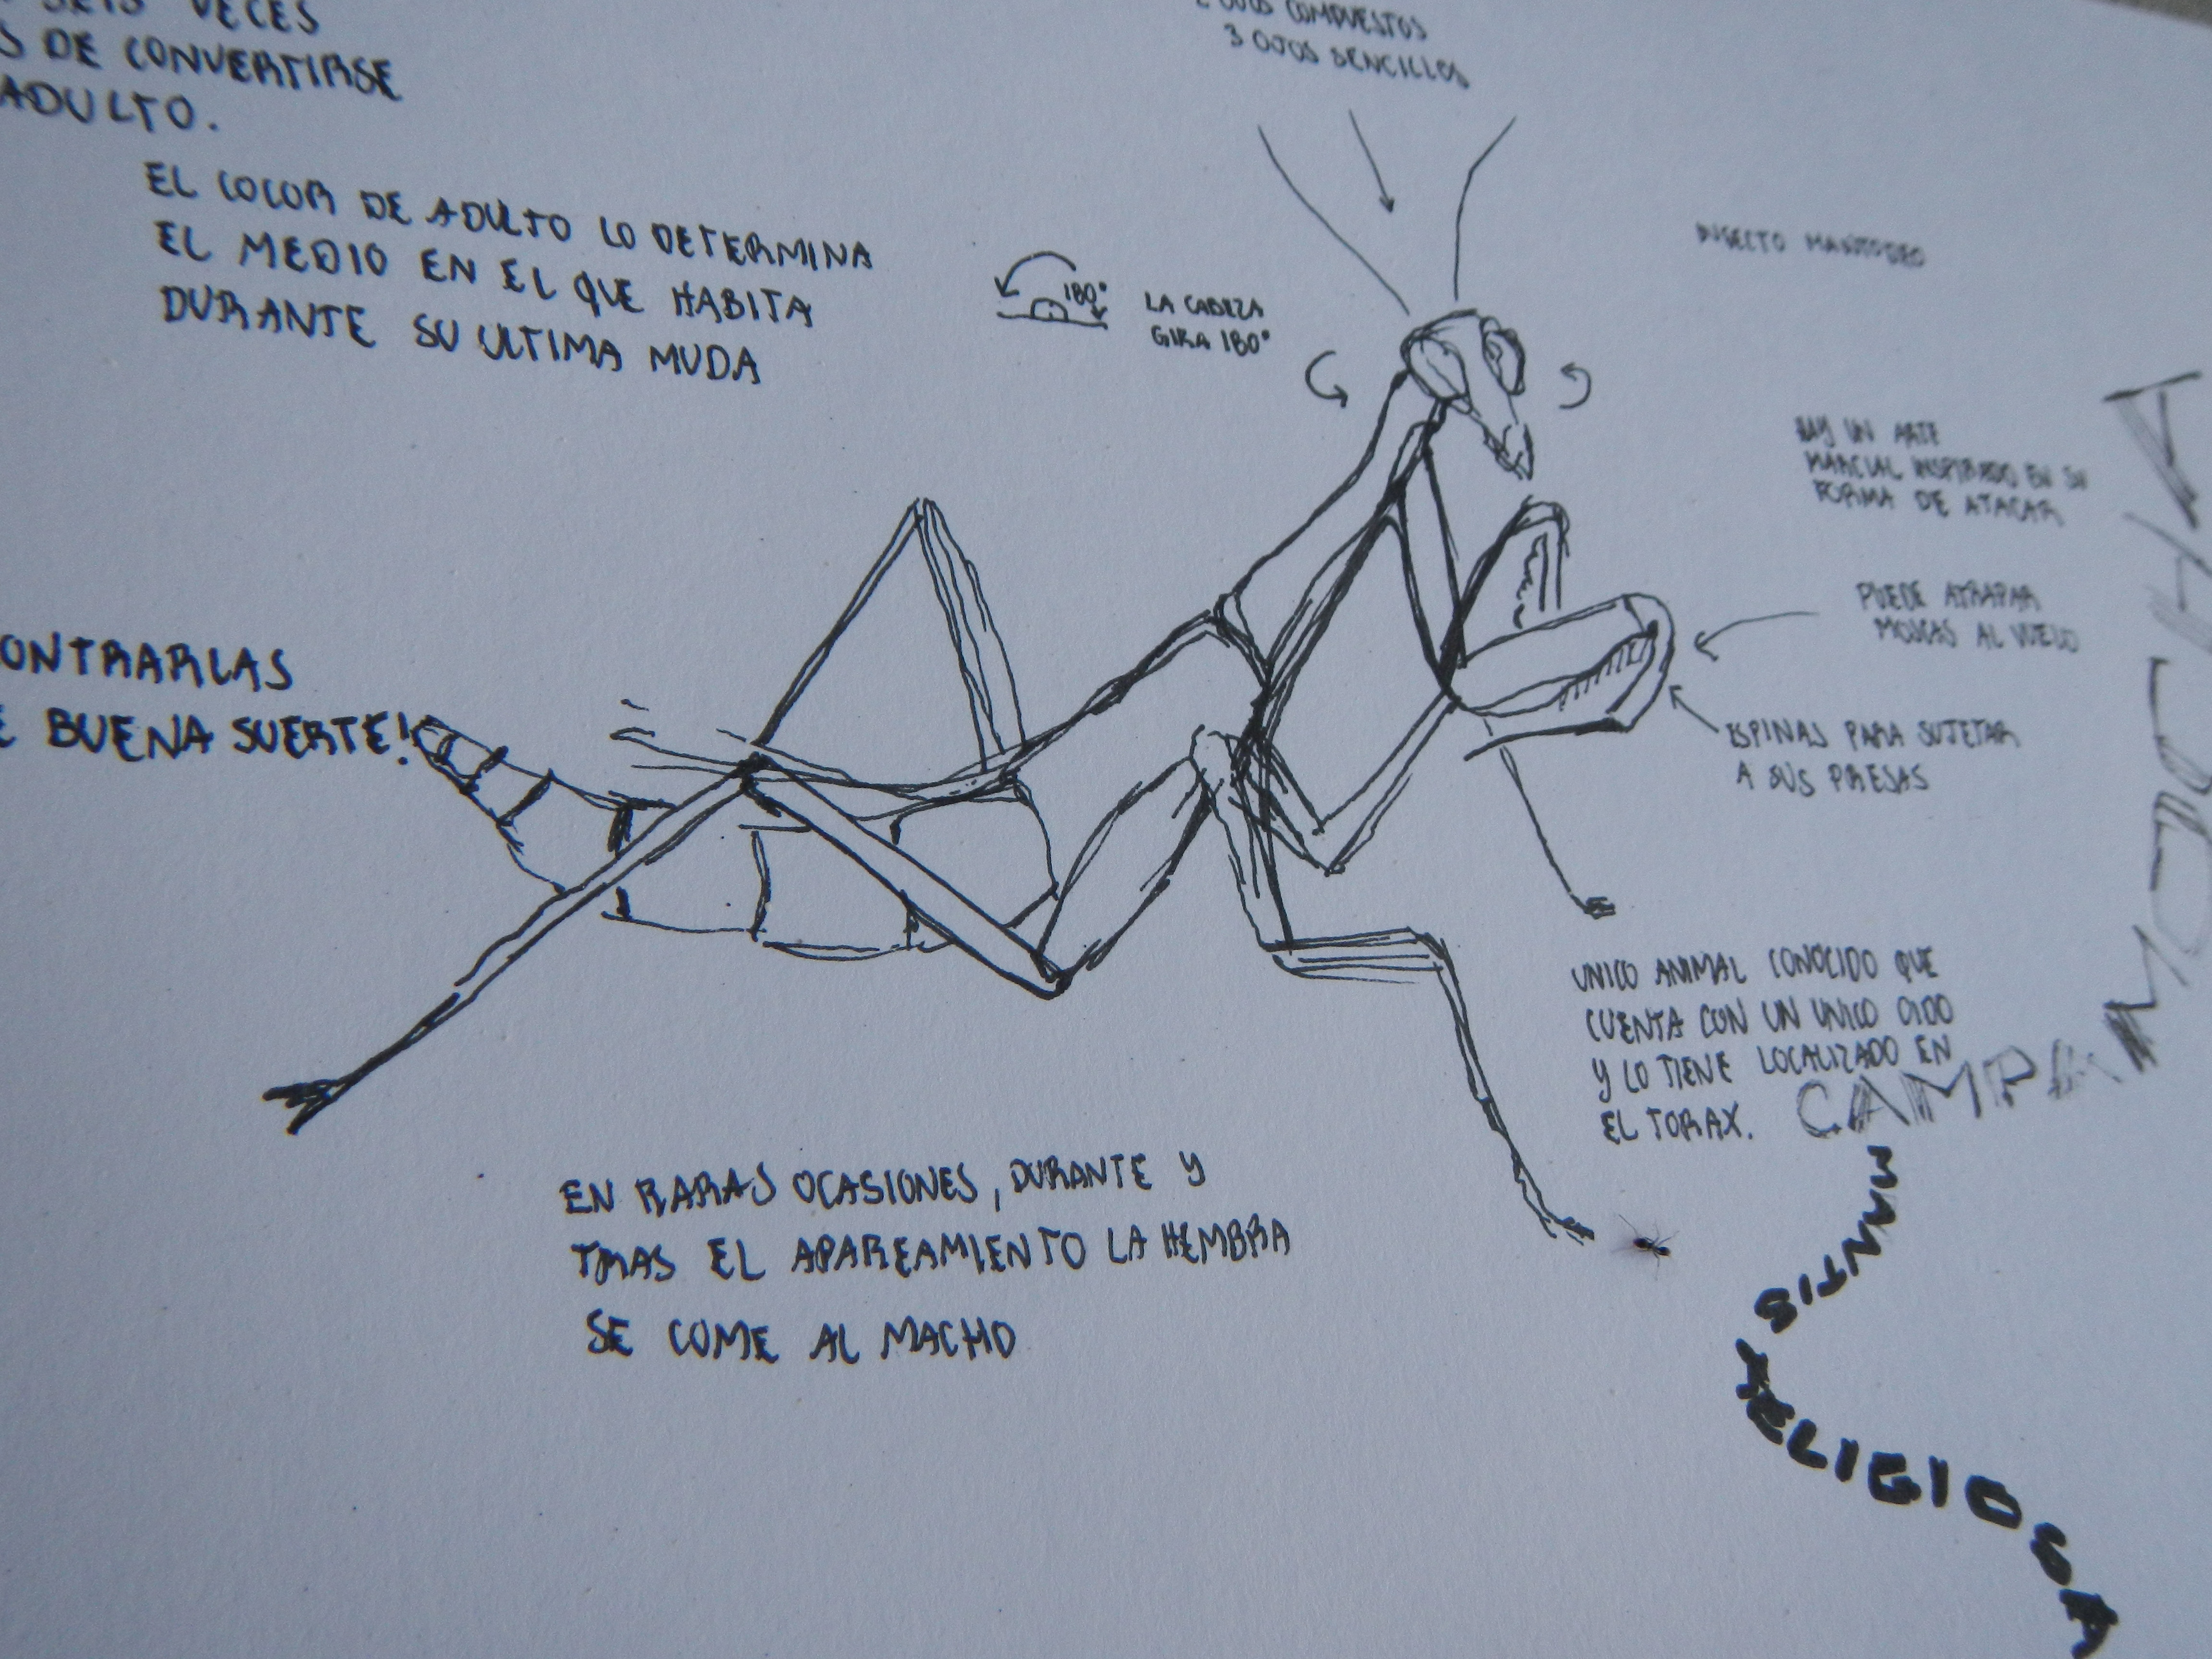 SEIS VECES
S DE CONVERTIRSE
ADULTO.
EL COLOR DE ADULTO LO DETERMINA
EL MEDIO EN EL QUE HABITA
DURANTE SU ULTIMA MUDA
2 OJOS COMPUESTOS
3 OJOS SENCILLOS
180°
LA CABEZA
GIRA 180°
INSECTO MANTODEO
HAY UN ARTE
MARCIAL INSPIRADO EN SU
FORMA DE ATACAR
PUEDE ATRAPAR
MOSCAS AL VUELO
ESPINAS PARA SUJETAR
A SUS PRESAS
ONTRARLAS
E BUENA SUERTE!
UNICO ANIMAL CONOCIDO QUE
CUENTA CON UN UNICO OIDO
Y LO TIENE LOCALIZADO EN
EL TORAX.
CAMPAMOCHA
MANTIS
RELIGIOSA
EN RARAS OCASIONES, DURANTE Y
TRAS EL APAREAMIENTO LA HEMBRA
SE COME AL MACHO